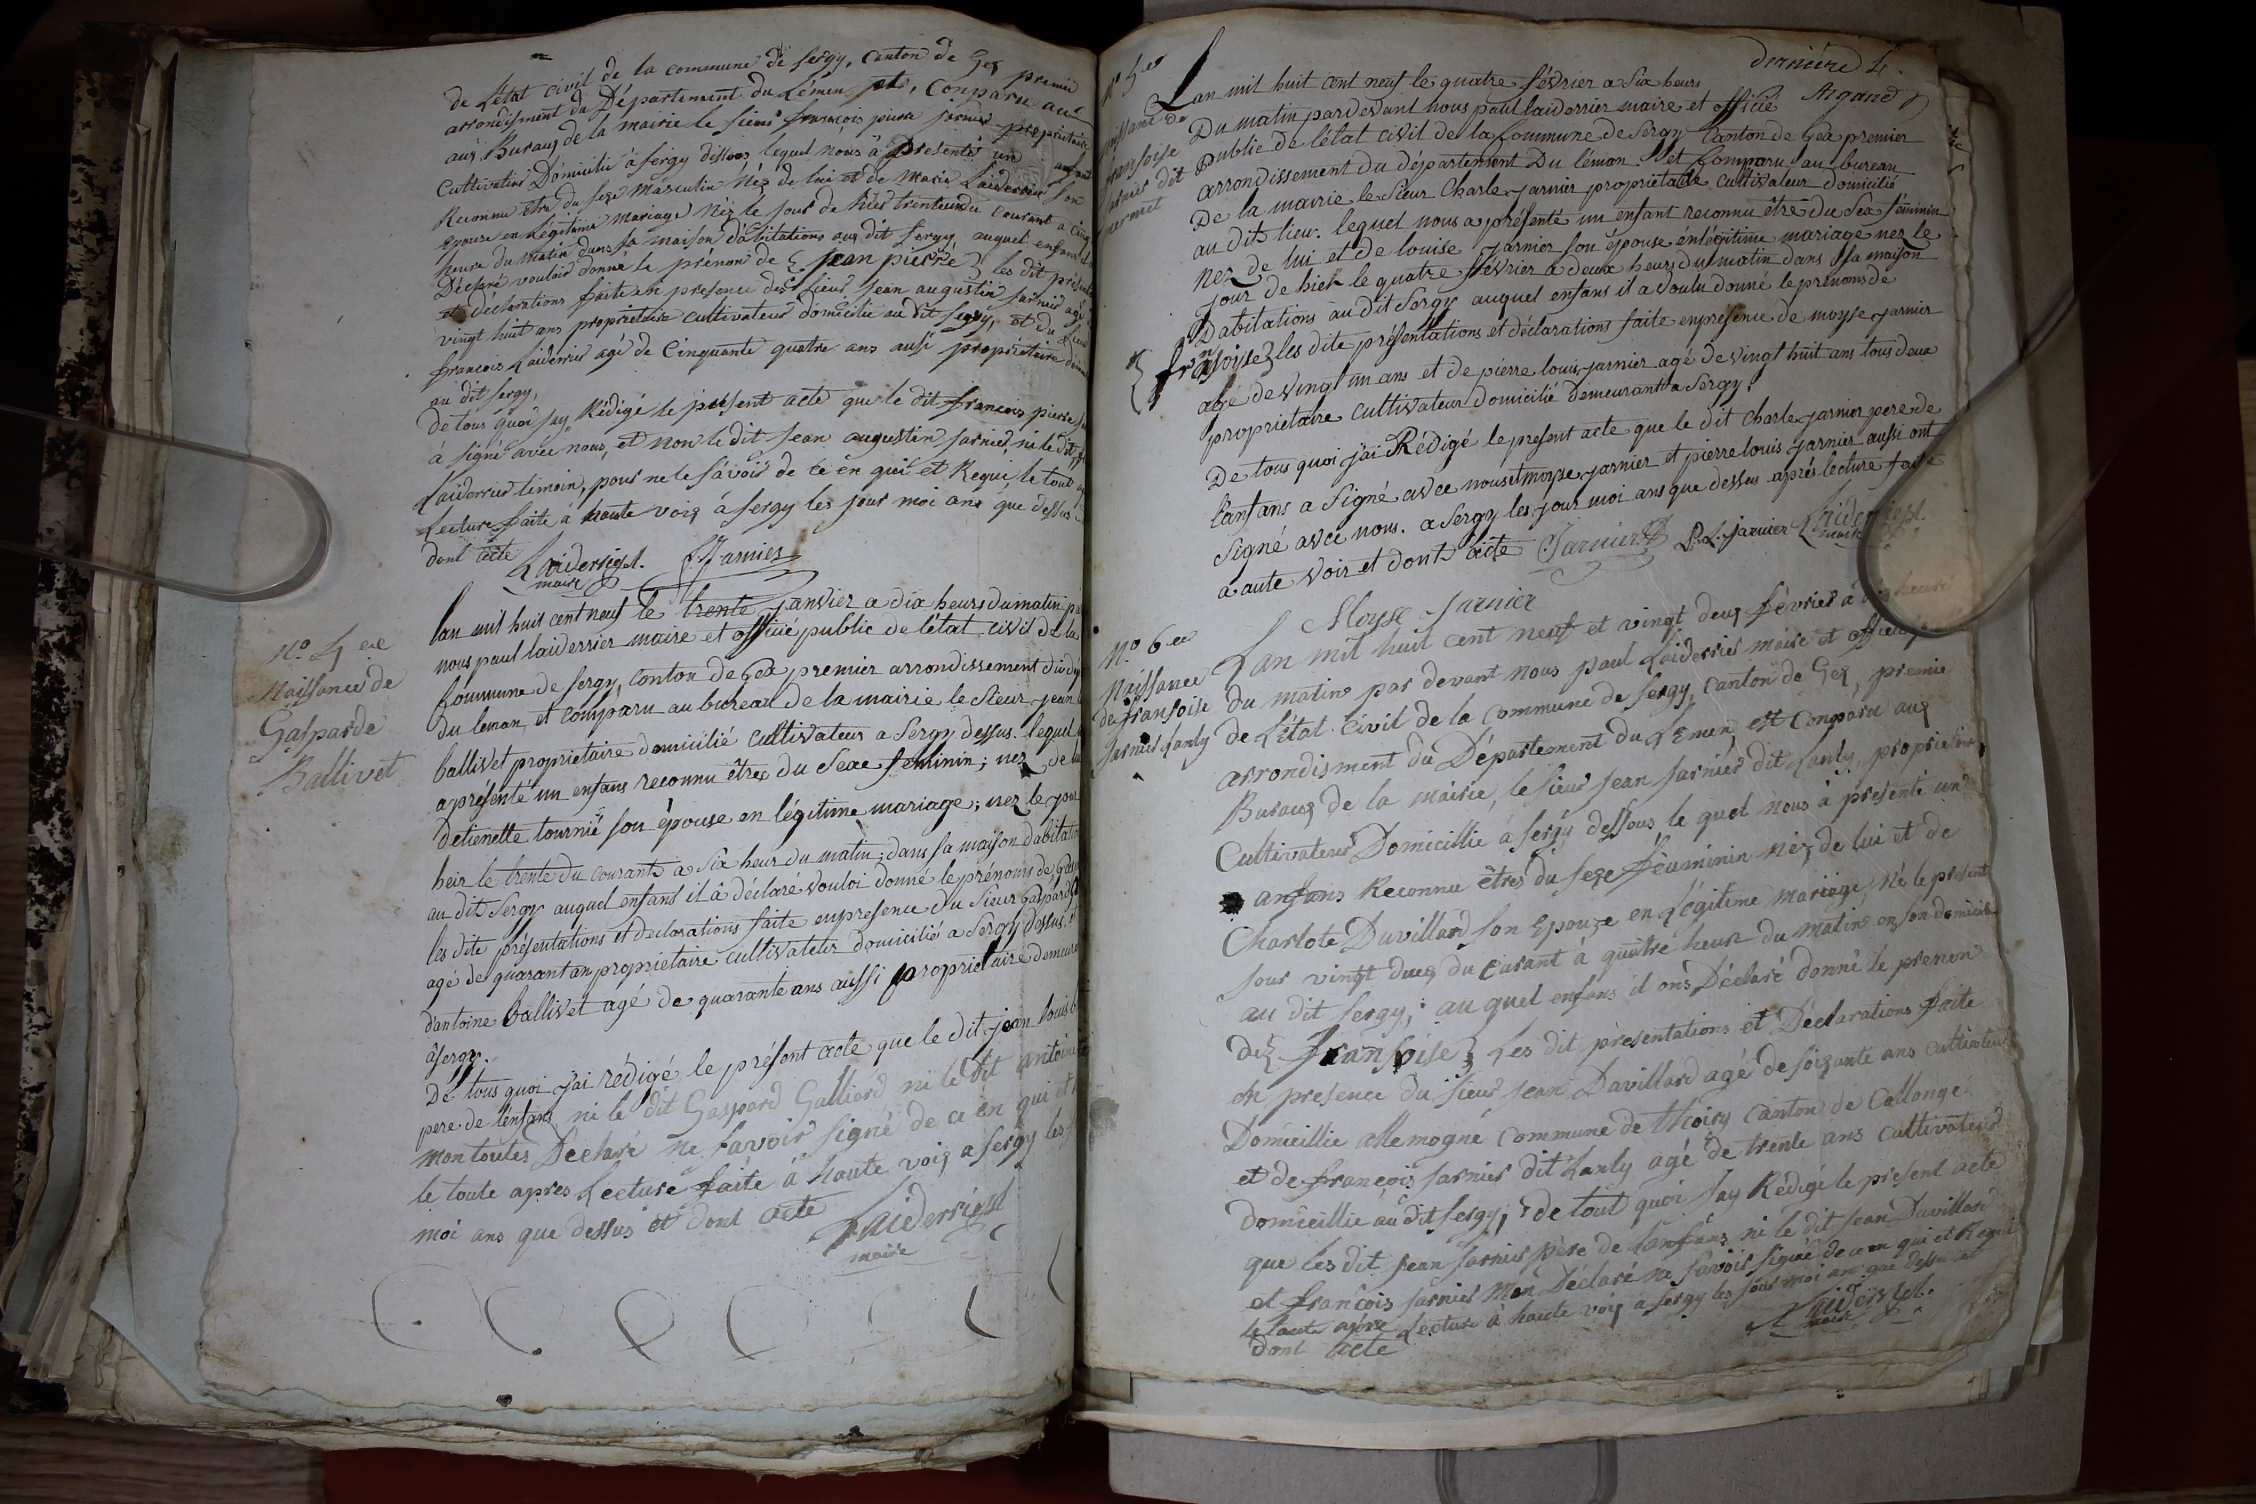 de L'état Civil de la commune de sergy, Canton de Gex premier
arrondisment du Département du Léman est, Conparu aux
aux Buraux de la mairie le sieur françois pierre jarnier propriétaire
Cultivateur Domicilié à sergy dessous lequel nous à presenté un anfant
Reconnu être du sexe Masculin Néz de lui et de Marie Laiderrier son
epouse en Légitime mariage Néz le jour de hier trenteundu courant a Cinq
heure du matin dans sa maison d'abitations aux dit Sergy auquel enfant il
Déclaré vouloir donné le prénon de { jean pierre } les dit présent
et déclarations faite en presence des sieur jean augustin jarnier agé
vingt huit ans propriétaire cultivateur domicilié au dit sergy, et du sieur
françois Laiderrier agé de Cinquante quatre ans aussi propriétaire
au dit sergy,
de tous quoi jay Rédigé le présent acte que le dit françois pierre
à signé avec nous, et non le dit jean augustin jarnier, ni le dit
Laiderrier témoin, pour ne le sávoir de ce en quei et Requi le tout
Lecture faite à haute voix á sergy les jour moi ans que dessus
dont acte Laiderriert. F. Jarnier
maire
No 4 eme
Naissance de
Gasparde
Ballivet
lan mil huit cent neuf le trente janvier a dix heurs du matin
nous paul laiderrier maire et officié public de l'état civil de la
Commune de sergy, Conton de Gex premier arrondissement du
du leman et comparu au bureau de la mairie le sieur jean
ballivet propriétaire domicilié cultivateur a sergy dessus. lequel
a présenté un enfans reconnu être du sexe féminin; nez de lui
detienette tournié son épouse en légitime mariage; nez le jour
heir le trente du courant a six heur du matin; dans sa maison dabitation
au dit Sergy auquel enfans il à déclaré vouloi donné le prénoms de
les dite présentations et declarations faite enpresence du sieur Gaspard
agé de quarant an propriétaire cultivateur domicilié a sergy dessus
d'antoine ballivet agé de quarante ans aussi propriétaire demeurant
à sergy.
De tous quoi jai rédigé le présent acte que le dit jean louis
pere de l'enfans ni le dit Gaspard Galliard ni le dit antoine
mon toutes Déclaré ne savoir signé de ce en qui et
le toute apres Lecture faite à haute voix a sergy les
moi ans que dessus et dont acte Laiderriert
maire
derniére 4.
Argand
No 5 eme
Naissance de
fransoise
jarnier dit
mermet
Lan mil huit cent neuf le quatre février a six heurs
Du matin pardevant nous paul laiderrier maire et officié
Public de l'état civil de la Commune de Sergy Canton de Gex premier
arrondissement du département Du léman et Comparu au bureau
De la mairie le sieur Charle jarnier propriétaire cultivateur domicilié
au dit lieu. lequel nous a présenté un enfant reconnu être du Sex féminin
nez de lui et de louise jarnier son épouse énlégitime mariage nez le
jour de hier le quatre février a deux heurs du matin dans sa maison
Dabitations au dit Sergy auquel enfans il a voulu donné le prénoms de
{ fransoise } les dite présentations et déclarations faite enprésence de moyse jarnier
agé de vingt un ans et de pierre louis jarnier agé de vingt huit ans tous deux
propriétaire cultivateur domicilié demeurant a Sergy.
De tous quoi jai Rédigé le présent acte que le dit Charle jarnier pere de
lanfans a signé avce nous et moyse jarnier et pierre louis jarnier aussi ont
signé avce nous. a Sergy les jour moi ans que dessus après lecture faite
a aute voix et dont acte C Jarnier P. L. jarnier Laiderriert.
maire
Moyse Jarnier
No 6 eme
Naissance
de fransoise
Jarnier Lanly
Lan mil huit cent neuf et vingt deux février à dix heure
du matin par devant nous paul Laiderrier maire et officié
de L'état Civil de la commune de sergy, canton de Gex, premier
arrondisment du Département du Léman, est Conparu aux
Buraux de la mairie, le sieur jean jarnier dit Lanly, propriétaire
Cultivateur Domicillié á sergy dessous le quel nous à présenté un
anfans Reconnu êtres du sexe féuminin néz de lui et de
Charlote Duvillard son Epouze en Légitime mariage, Né le présent
jour vingt deux du Curant á quatre heur du matin en son domicile
au dit sergy, auquel enfans il ons Déclaré donné le prenon
de { fransoise } Les dit présentations et Déclarations faite
en presence du sieur jean Duvillard agé de soixante ans cultivateur
Domicillié allemogne commune de thoiry canton de Collonge
et de françois jarnier dit Lanly agé de trente ans cultivateur
domicillié au dit sergy, de tout quoi Jay Rédigé le présent acte
que les dit jean jarnier père de Lanfans ni le dit jean Duvillard
et françois jarnier Mon Déclaré ne savoir signée de ce en qui et Requi
le toute apres Lecture à haute voix a sergy les jour moi ans que dessu et
dont acte Laiderriert.
maire